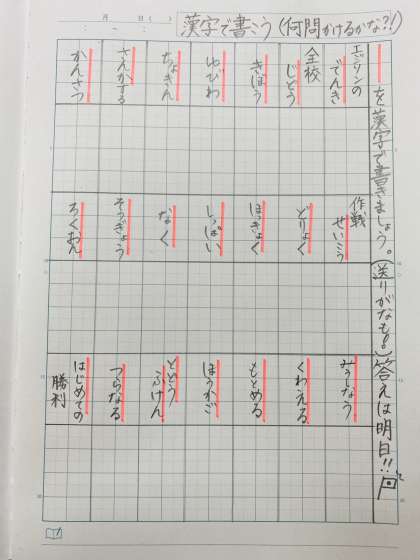 月 日 ( )
漢字で書こう(何問かけるかな?!)
を漢字で書きましょう。(送りがなも!)答えは明日!!
エジソンの
でんき
全校
じどう
きぼう
ゆびわ
ちょきん
さんかする
かんさつ
作戦
せいこう
どりょく
ほっきょく
しっぱい
なく
そつぎょう
ろくおん
みうしなう
くわえる
もとめる
ほうかご
とどう
ふけん
つらなる
はじめての
勝利